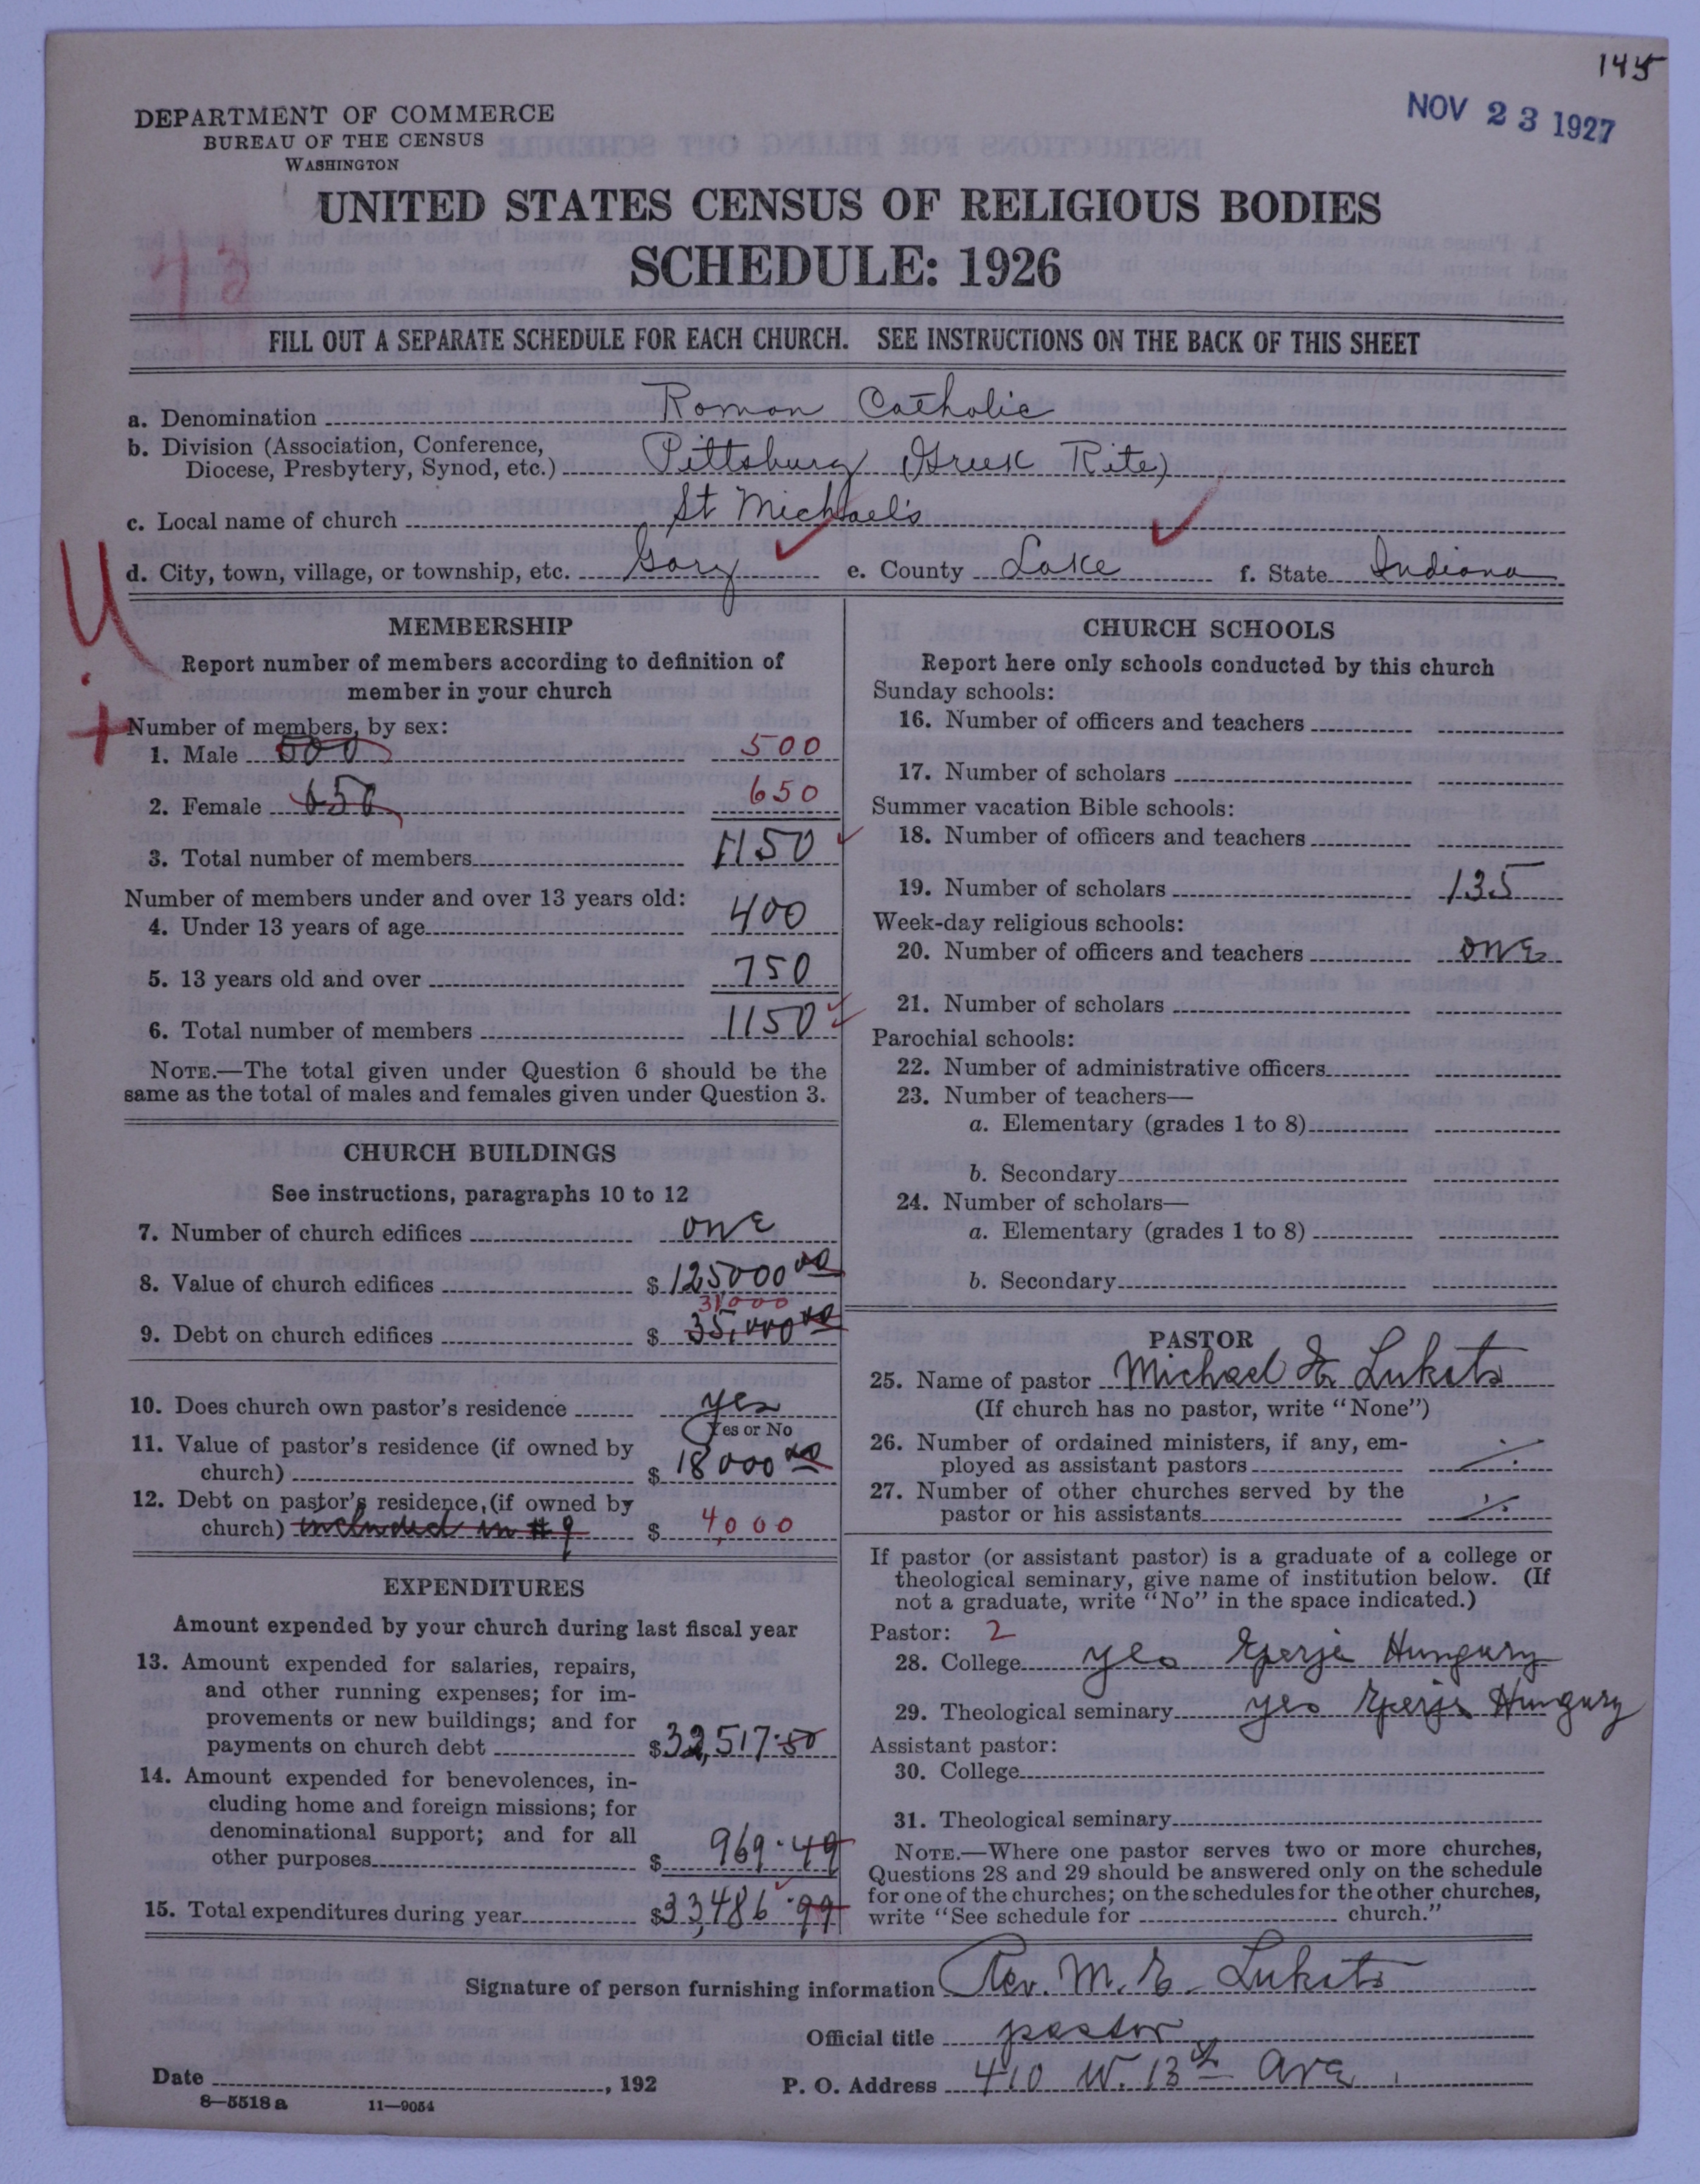 145
NOV 23 1927
DEPARTMENT OF COMMERCE
BUREAU OF THE CENSUS
WASHINGTON
UNITED STATES CENSUS OF RELIGIOUS BODIES
SCHEDULE: 1926
FILL OUT A SEPARATE SCHEDULE FOR EACH CHURCH. SEE INSTRUCTIONS ON THE BACK OF THIS SHEET
a. Denomination Roman Catholic
b. Division (Association, Conference,
Diocese, Presbytery, Synod, etc.) Pittsburg (Greek Rite)
c. Local name of church St Michael's
d. City, town, village, or township, etc. Gary e. County Lake f. State Indiana
MEMBERSHIP
Report number of members according to definition of
member in your church
Number of members, by sex:
1. Male 500 500
2. Female 650 650
3. Total number of members 1150
Number of members under and over 13 years old:
4. Under 13 years of age 400
5. 13 years old and over 750
6. Total number of members 1150
NOTE.—The total given under Question 6 should be the
same as the total of males and females given under Question 3.
CHURCH BUILDINGS
See instructions, paragraphs 10 to 12
7. Number of church edifices one
8. Value of church edifices $125000 00
31000
9. Debt on church edifices $ 35,000 00
10. Does church own pastor's residence yes
Yes or No
11. Value of pastor's residence (if owned by
church) $ 18000 00
12. Debt on pastor's residence, (if owned by
church) included in #9 $ 4,000
EXPENDITURES
Amount expended by your church during last fiscal year
13. Amount expended for salaries, repairs,
and other running expenses; for im-
provements or new buildings; and for
payments on church debt $32,517.50
14. Amount expended for benevolences, in-
cluding home and foreign missions; for
denominational support; and for all
other purposes $ 969.49
15. Total expenditures during year $33,486.99
CHURCH SCHOOLS
Report here only schools conducted by this church
Sunday schools:
16. Number of officers and teachers
17. Number of scholars
Summer vacation Bible schools:
18. Number of officers and teachers
19. Number of scholars 135
Week-day religious schools:
20. Number of officers and teachers one
21. Number of scholars
Parochial schools:
22. Number of administrative officers
23. Number of teachers—
a. Elementary (grades 1 to 8)
b. Secondary
24. Number of scholars—
a. Elementary (grades 1 to 8)
b. Secondary
PASTOR
25. Name of pastor Michael E. Lukats
(If church has no pastor, write "None")
26. Number of ordained ministers, if any, em-
ployed as assistant pastors
27. Number of other churches served by the
pastor or his assistants
If pastor (or assistant pastor) is a graduate of a college or
theological seminary, give name of institution below. (If
not a graduate, write "No" in the space indicated.)
Pastor: 2
28. College yes Eperje Hungary
29. Theological seminary yes Eperje Hungary
Assistant pastor:
30. College
31. Theological seminary
NOTE.—Where one pastor serves two or more churches,
Questions 28 and 29 should be answered only on the schedule
for one of the churches; on the schedules for the other churches,
write "See schedule for church."
Signature of person furnishing information Rev. M. E. Lukats
Official title pastor
Date , 192 P. O. Address 410 W. 13th Ave
8—5518a 11—9054